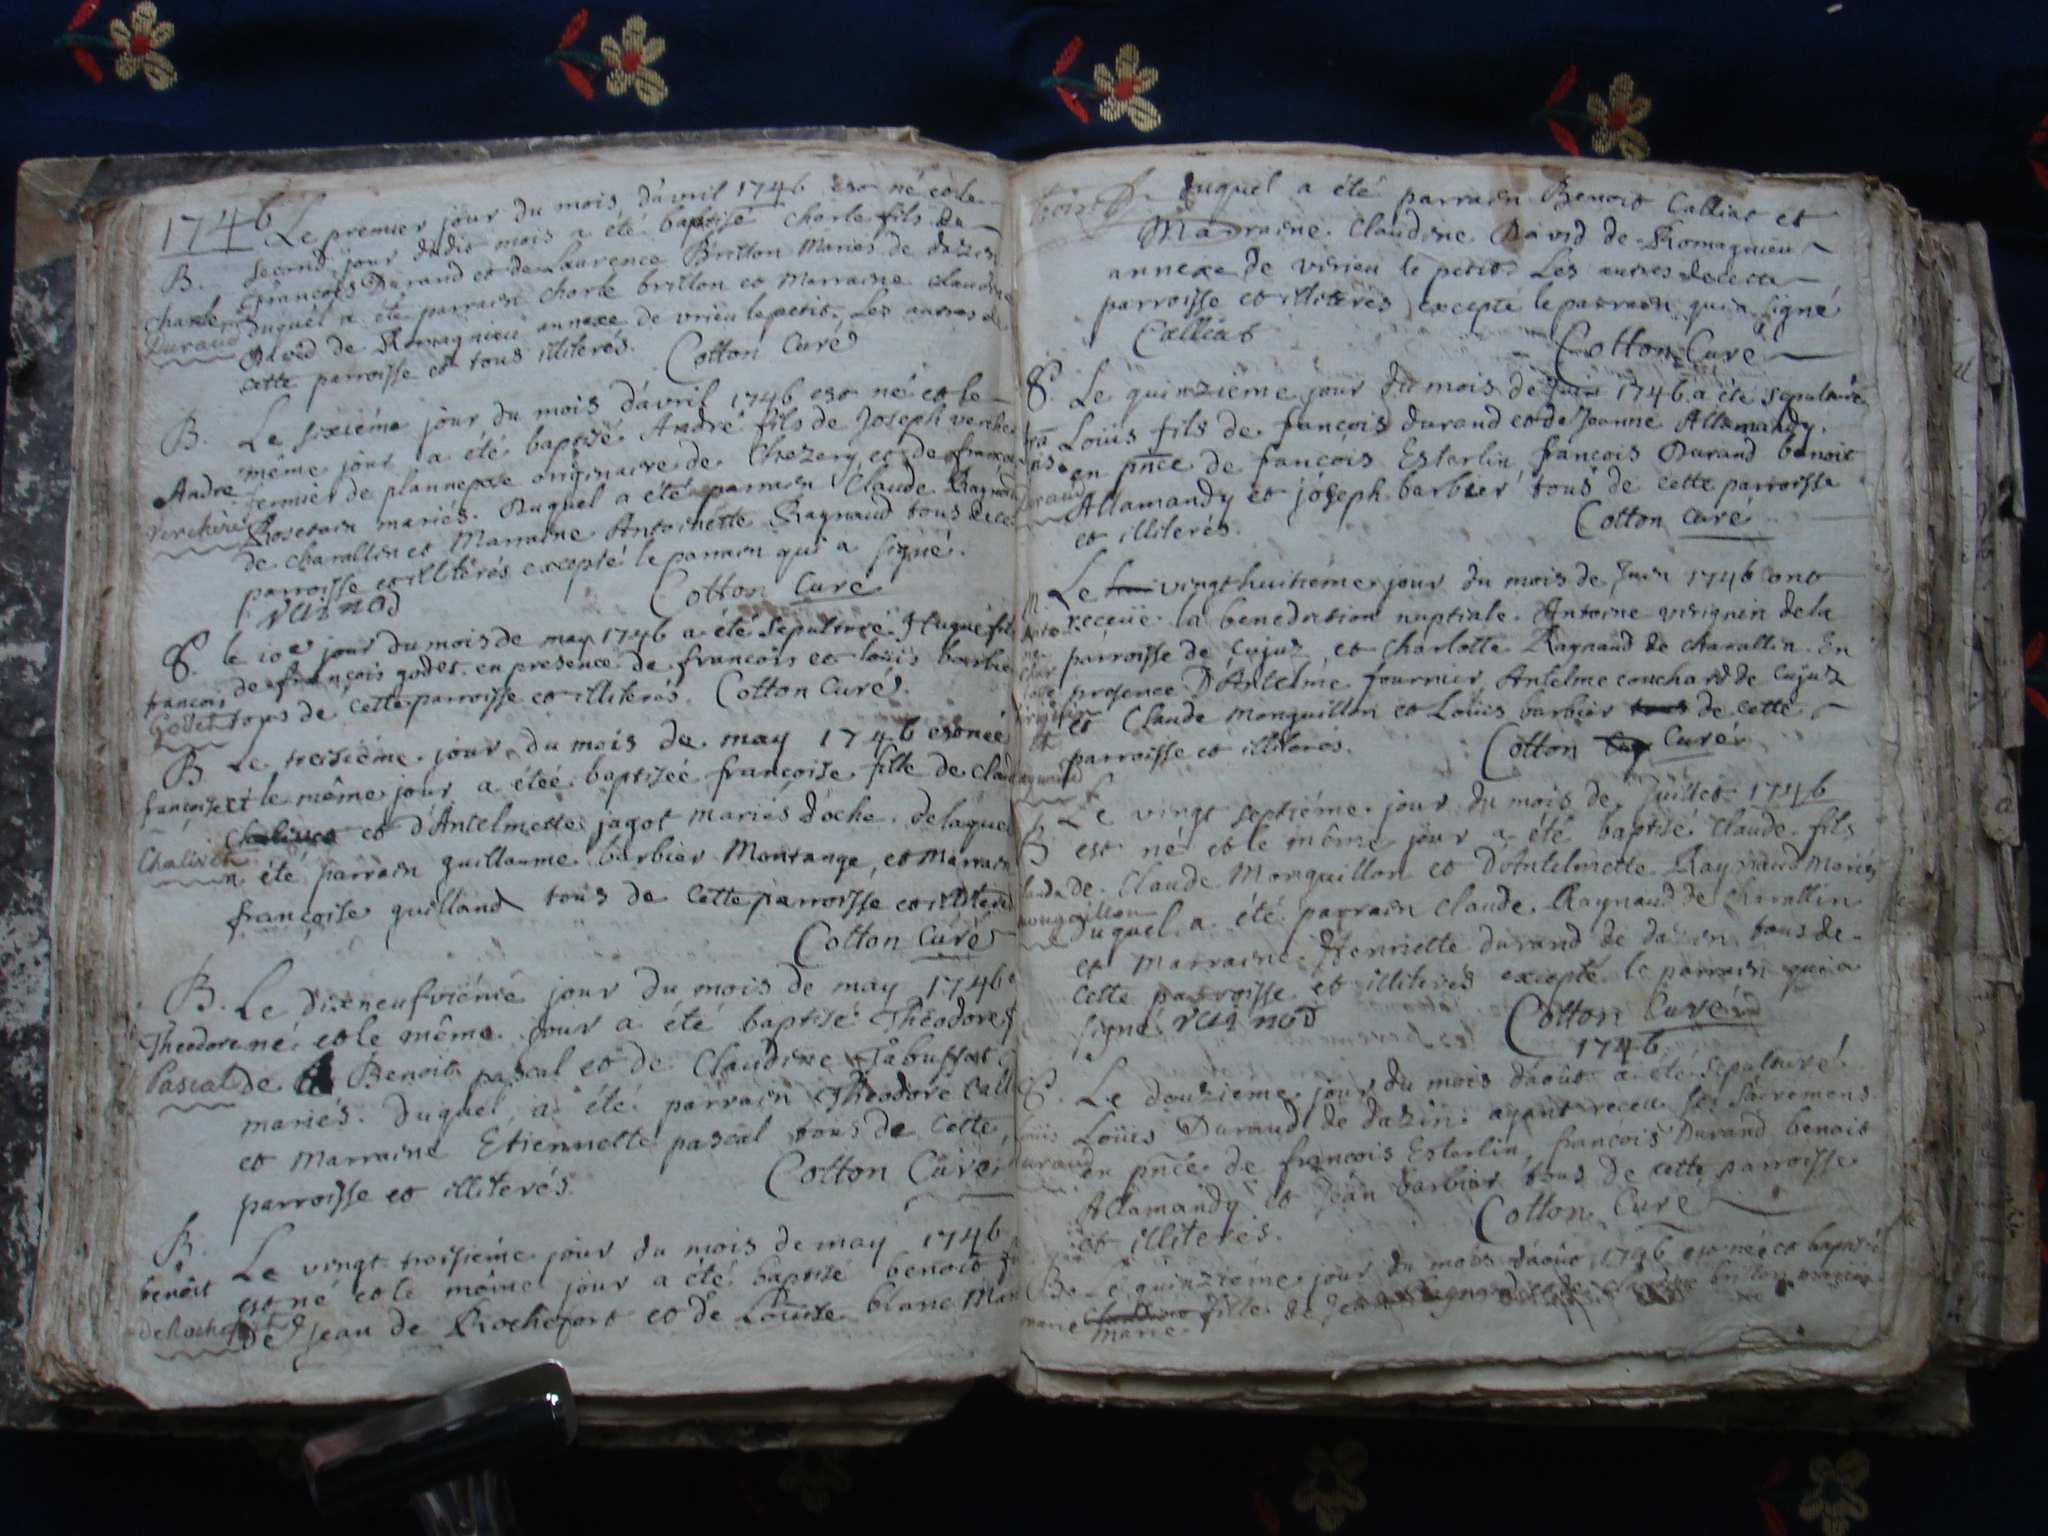 1746 Le premier jour du mois d'avril 1746 est né et le
B. second jour dudit mois a été baptisé charle fils de
françois Durand et de Laurence Brillon Mariés de dazin
charle Duquel a été parrain charle brillon et Marraine claudine
Durand David de Romagnieu annexe de virieu le petit. Les autres de
cette parroisse et tous illiterés. Cotton Curé
B. Le sixiéme jour du mois d'avril 1746 est né et le
même jour a été baptisé André fils de Joseph verchere
André fermier de plannepese originaire de Chezery et de françoise
verchere Rosetain mariés. Duquel a été parrain Claude Raynaud
de charallin et Marraine Antoinette Raynaud tous de cette
parroisse et illiterés excepté le parrain qui a signé.
rainod Cotton Curé
S. le 10e jour du mois de may 1746 a été sepulturé Hugue fils
françois de françois godet en presence de françois et loüis barbier
Godet tous de cette parroisse et illiterés. Cotton Curé
B Le treisiéme jour du mois de may 1746 est née
françoise et le même jour a étéé baptiséé françoise fille de claude
Chalivet et d'Antelmette jagot mariés d'oche. delaquelle
Chalivet a été parrain guillaume barbier Montange, et Marraine
françoise guilland tous de cette parroisse et illiterés
Cotton Curé
B. Le dixneufviéme jour du mois de may 1746 est
Theodore né et le même jour a été baptisé Théodore f
Pascal de Benoit pascal et de Claudine Tabussat
mariés. duquel a été parrain Théodore Call
et Marraine Etiennette pascal tous de cette
parroisse et illiterés. Cotton Curé
B. Le vingt troisiéme jour du mois de may 1746
benoit est né et le même jour a été baptisé benoit fils
de Rochefort de Jean de Rochefort et de Loüise blanc Mariés
Duquel a été parrain Benoit Calliat et
Marraine Claudine David de Romagnieu
annexe de virieu le petit. Les autres de cette
parroisse et illiterés excepté le parrain qui a signé
Calliat Cotton Curé
S. Le quinziéme jour du mois de Juin 1746 a été sepulturé
Loüis fils de françois durand et de Jeanne Allamandy.
en pñce de françois Esterlin, françois Durand benoit
Allamandy et joseph barbier tous de cette parroisse
et illiterés. Cotton curé
Le vingt huitiéme jour du mois de Juin 1746 ont
receüe la benediction nuptiale Antoine virignin de la
parroisse de Cujuz et Charlotte Raynaud de charallin. En
presence D'Antelme fournier, Antelme couchard de Cujuz
et Claude Monguillon et Loüis barbier tous de cette
parroisse et illiterés. Cotton Curé
Le vingt septiéme jour du mois de Juillet 1746
B est né et le même jour a été baptisé Claude fils
de Claude Monguillon et d'Antelmette Raynaud Mariés
mongoillon Duquel a été parrain claude Raynaud de charallin
et Marraine Henriette durand de dazin tous de
cette parroisse et illiterés excepté le parrain qui a
signé rainod Cotton Curé
1746
S. Le douziéme jour du mois d'août a été sepulturé
Loüis Durand de dazin. ayant receu ses sacremens
en pñce de françois Esterlin, françois Durand benoit
Allamandy et Jean barbier tous de cette parroisse
et illiterés. Cotton Curé
B. Le quinziéme jour du mois d'août 1746 est née et baptisée
marie Claudine fille de
marie